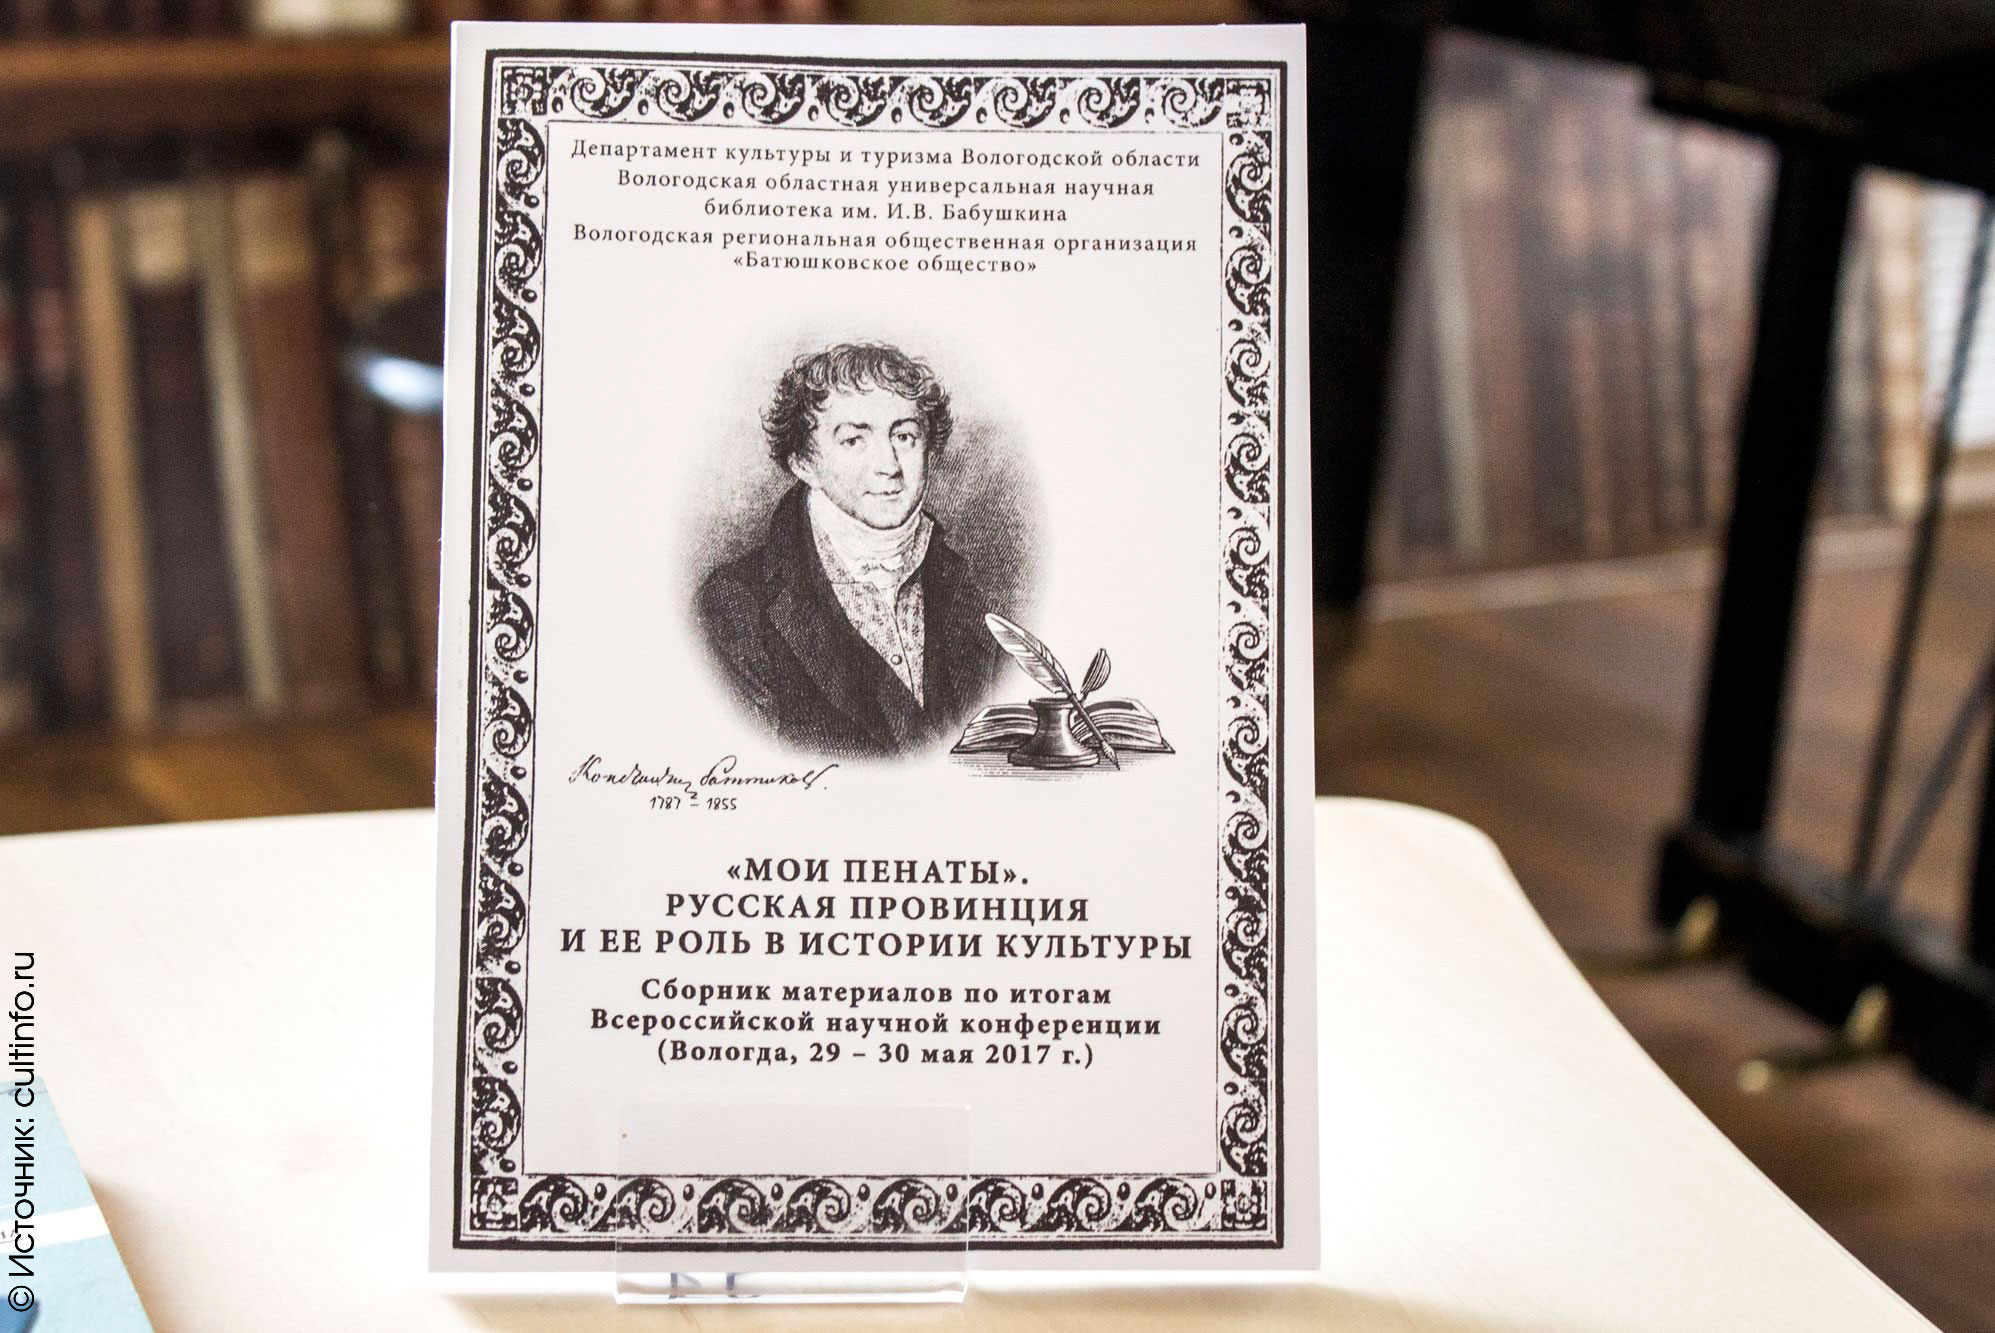 Департамент культуры и туризма Вологодской области
Вологодская областная универсальная научная
библиотека им. И.В. Бабушкина
Вологодская региональная общественная организация
«Батюшковское общество»
1787 – 1855
«МОИ ПЕНАТЫ».
РУССКАЯ ПРОВИНЦИЯ
И ЕЕ РОЛЬ В ИСТОРИИ КУЛЬТУРЫ
Сборник материалов по итогам
Всероссийской научной конференции
(Вологда, 29 – 30 мая 2017 г.)
© Источник: cultinfo.ru